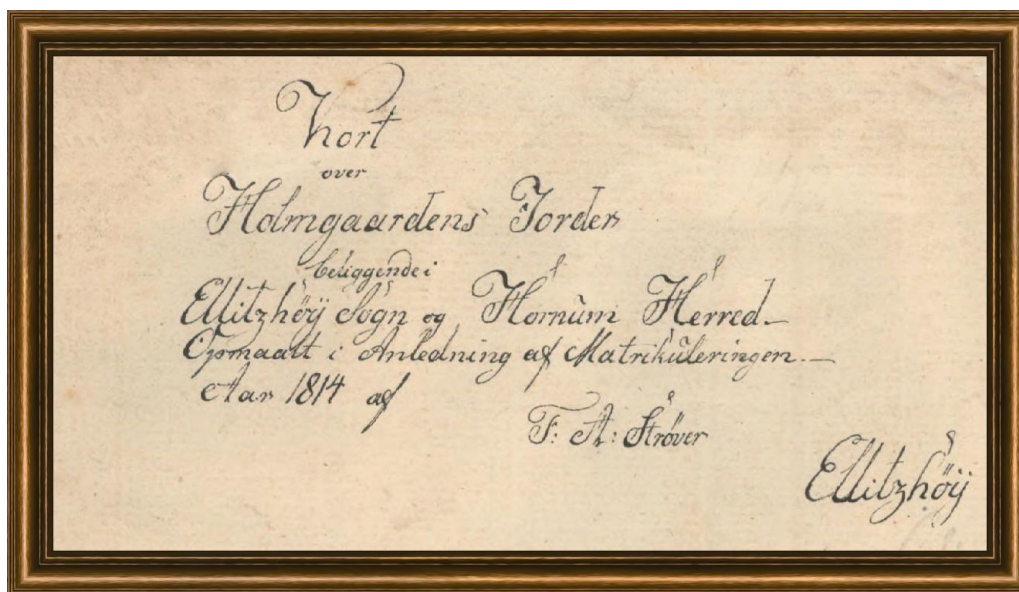 Kort
over
Holmgaardens Jorder
beliggende i
Ellitzhöÿ Sogn og Hornum Herred
Opmaalt i Anledning af Matrikuleringen
Aar 1814 af
F: A: Ströver
Ellitzhöÿ